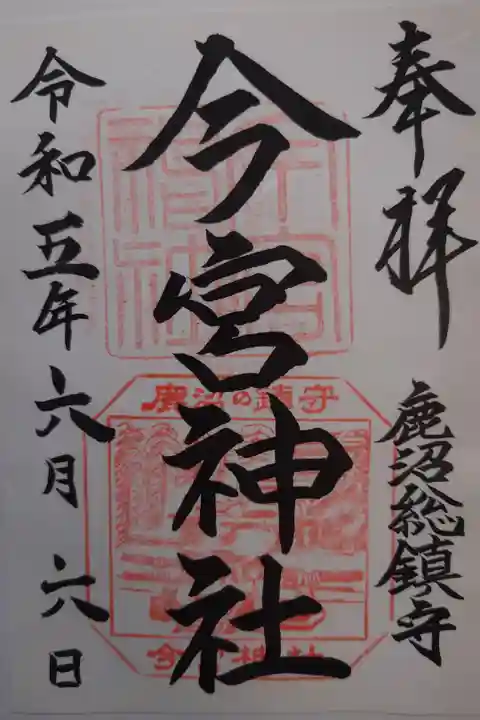 奉拝
鹿沼総鎮守
今宮神社
鹿沼の鎮守
今宮神社
令和五年六月六日